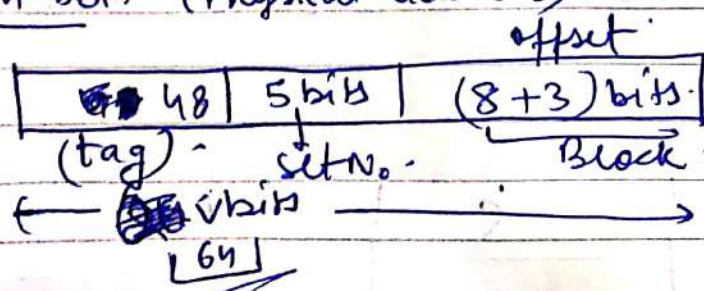 (Physical
offset
48 | 5 bits | (8+3) bits.
(tag). set No. Block
bits
64